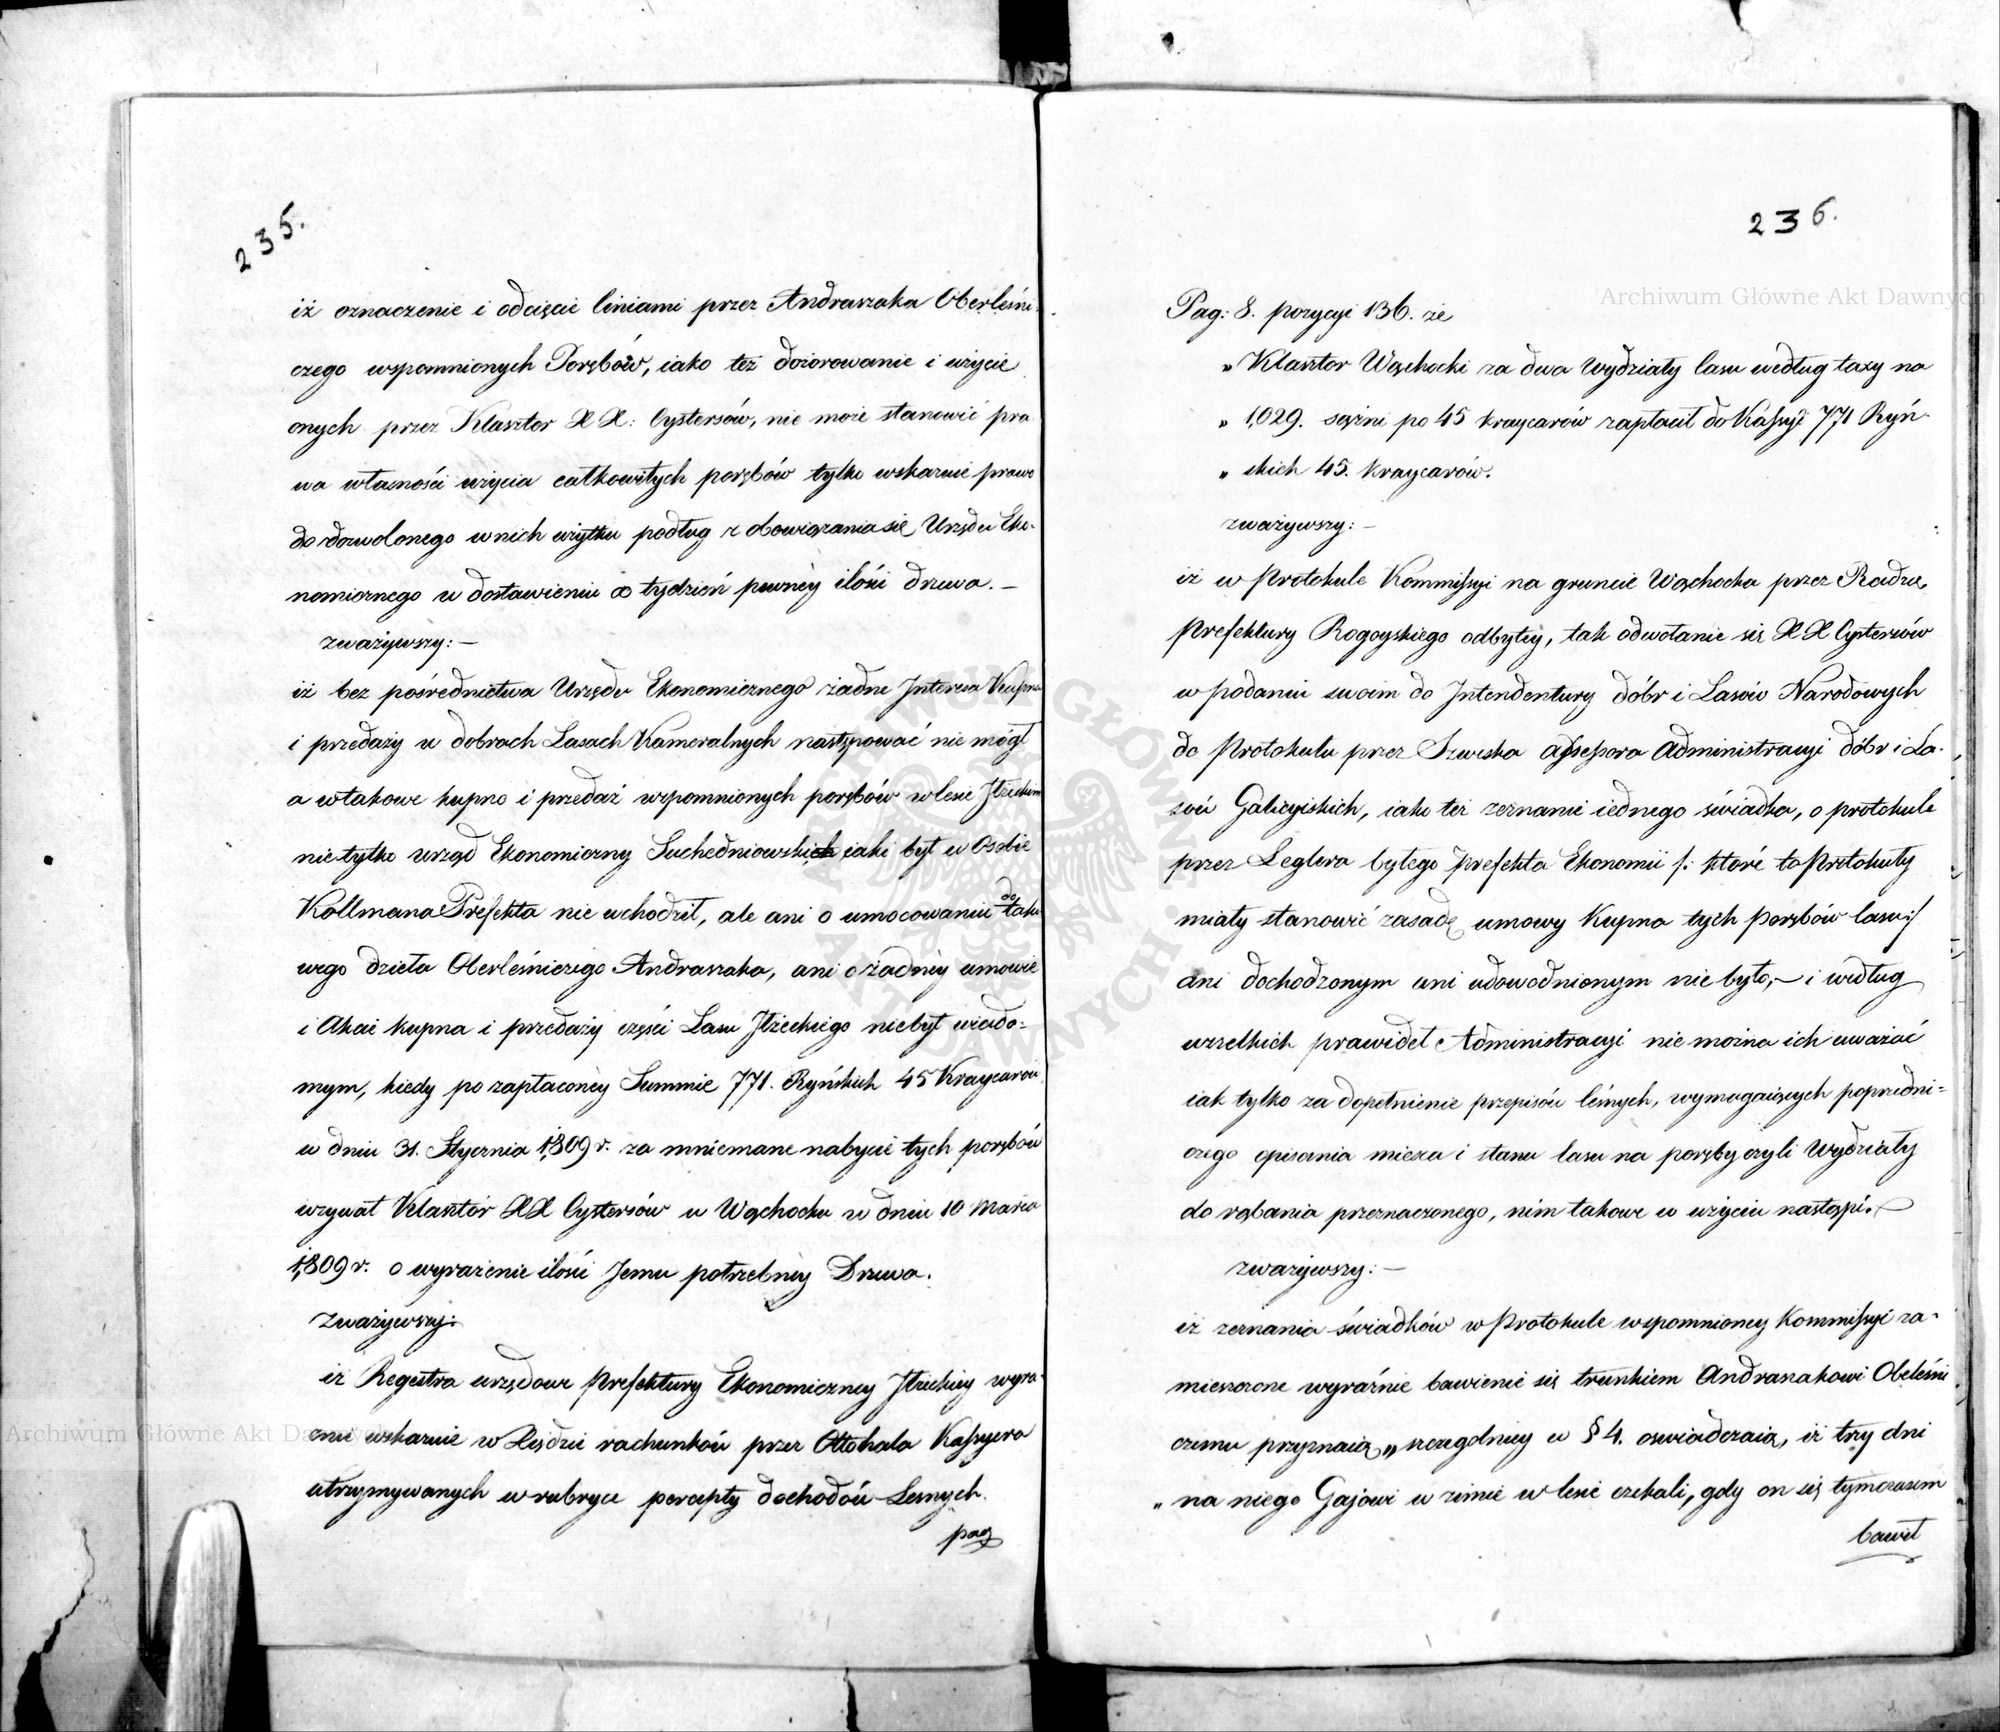 235.
iż oznaczenie i odcięcie liniami przez Andraszaka Oberleśni-
czego wspomnionych Porębów, iako też dozorowanie i użycie
onych przez Klasztor XX: Cystersów, nie może stanowić pra
wa własności użycia całkowitych porębów tylko wskazuie prawo
do dozwolonego w nich użytku podług zobowiązania się Urzędu Eko-
nomicznego w dostawieniu co tydzień pewnéy ilości drzewa. —
zważywszy: —
iż bez pośrednictwa Urzędu Ekonomicznego żadne Interesa Kupna
i przedaży w dobrach Lasach Kameralnych następować nie mógł
a w takowe kupno i przedaż wspomnionych porębów w lesie Iłżeckim
nie tylko urząd Ekonomiczny Suchedniowski iaki był w Osobie
Kollmana Prefekta nie wchodził, ale ani o umocowaniu do tako
wego dzieła Oberleśniczego Andraszaka, ani o żadnéy umowie
i Akcie kupna i przedaży części Lasu Iłżeckiego nie był wiado=
mym, kiedy po zapłaconéy Summie 771. Ryńskich 45 Kraycarów
w dniu 31. Stycznia 1,809 r. za mniemane nabycie tych porębów
wzywał Klasztór XX Cystersów w Wąchocku w dniu 10 Marca
1,809 r. o wyrażenie ilości Jemu potrzebnéy Drzewa.
Zważywszy:
iż Regestra urzędowe Prefektury Ekonomiczney Iłżeckiey wyra-
źnie wskazuie w Xiędze rachunków przez Ottokala Kassyera
utrzymywanych w rubryce percepty dochodów Leśnych.
pag
236.
Pag: 8. pozycyi 136. że
„ Klasztor Wąchocki za dwa Wydziały lasu według taxy na
„ 1,029. sążni po 45 kraycarów zapłacił do Kassyi 771 Ryń-
„ skich 45. kraycarów.
zważywszy: —
iż w Protokule Kommissyi na gruncie Wąchocka przez Radzcę
Prefektury Rogoyskiego odbytey, tak odwołanie się XX Cystersów
w podaniu swoim do Intendentury dóbr i Lasów Narodowych
do Protokułu przez Szweska assessora Administracyi dóbr i La-
sów Galicyiskich, iako też zeznanie iednego świadka, o protokule
przez Leglera byłego Prefekta Ekonomii /: które to Protokuły
miały stanowić zasadę umowy Kupna tych Porębów lasu:/
ani dochodzonym ani udowodnionym nie było, — i według
wszelkich prawideł Administracyi nie można ich uważać
iak tylko za dopełnienie przepisów leśnych, wymagaiących poprzedni=
czego opisania mieysca i stanu lasu na poręby czyli Wydziały
do rąbania przeznaczonego, nim takowe w użyciu nastąpi. —
zważywszy: —
iż zeznania świadków w Protokule wspomnioney Kommissyi za-
mieszczone wyraźnie bawienie się trunkiem Andraszakowi Obeleśni
czemu przyznaią, „szczególniey w § 4. oświadczaią, iż trzy dni
„ na niego Gajowi w zimie w lesie czekali, gdy on się tymczasem
bawił
Archiwum Główne Akt Dawnych
Archiwum Główne Akt Dawnych
ARCHIWUM GŁÓWNE AKT DAWNYCH